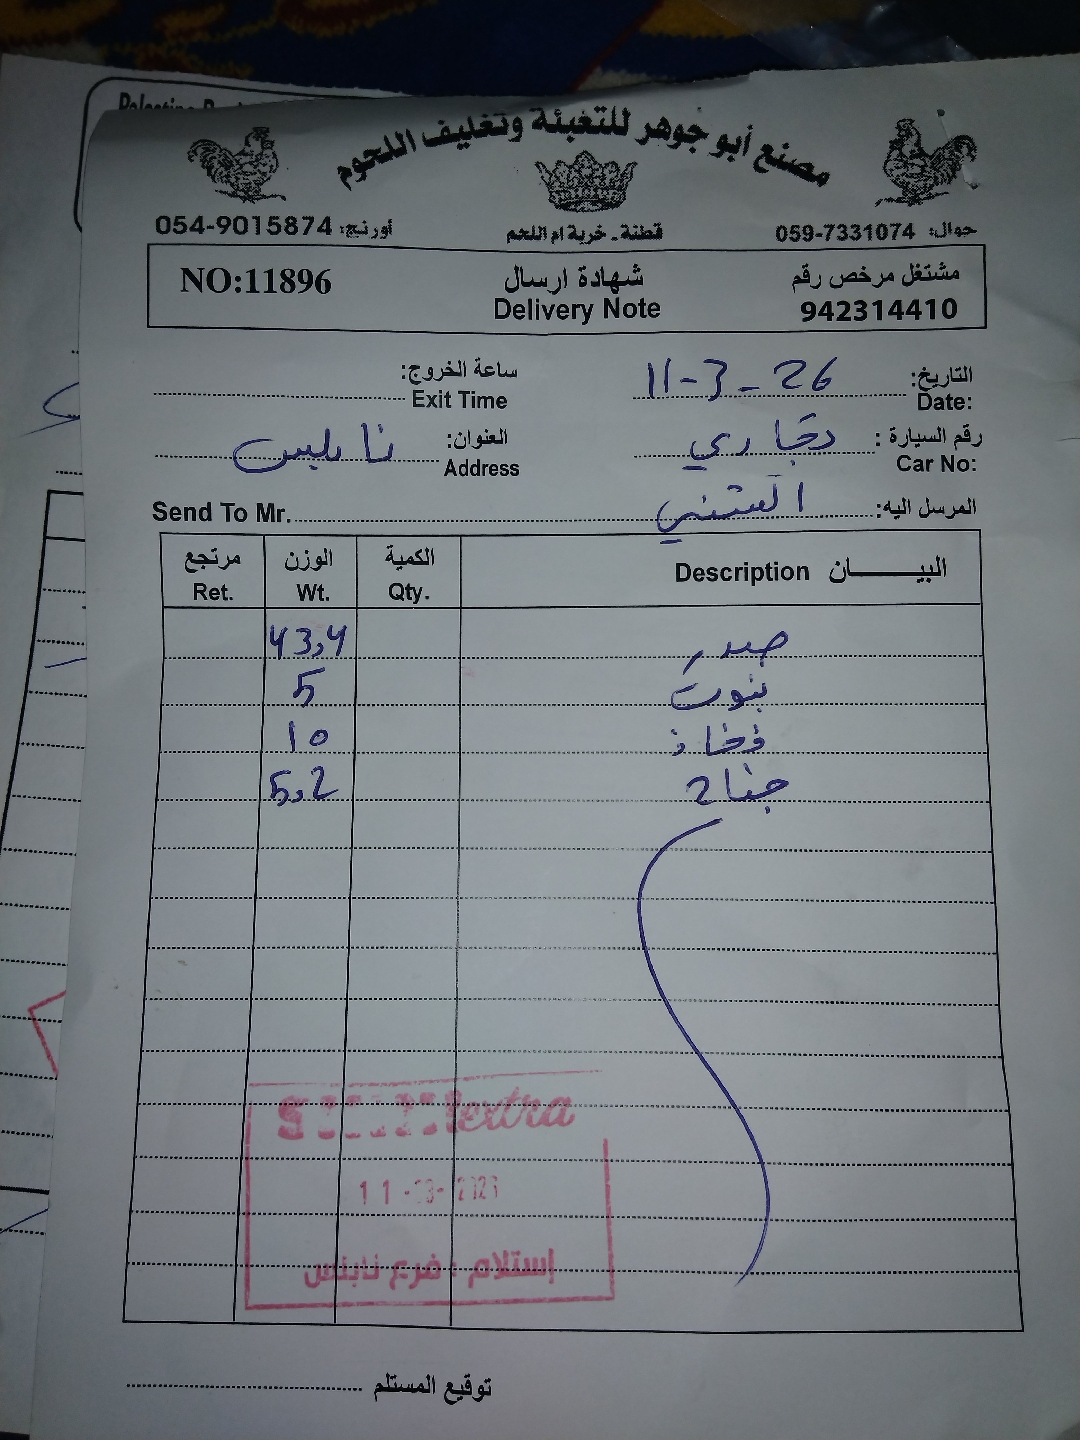 Palestine
مصنع أبو جوهر للتغبئة وتغليف اللحوم
حوال: 059-7331074 قطنة - خربة ام اللحم أورنج: 054-9015874
مشتغل مرخص رقم شهادة ارسال NO:11896
942314410 Delivery Note
التاريخ: 11-3-26 ساعة الخروج:
Date: Exit Time
رقم السيارة : تجاري العنوان: نابلس
Car No: Address
المرسل اليه: Send To Mr.
البيـــــــان Description الكمية الوزن مرتجع
Qty. Wt. Ret.
صدر 43,4
5
فخاذ 10
جناح 5,2
extra
11-03-2026
إستلام : فرع نابلس
توقيع المستلم